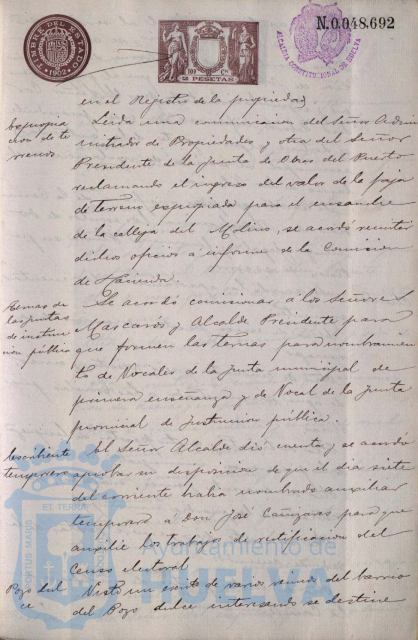 TIMBRE DEL ESTADO
1902
2 PESETAS
N.0.048.692
ALCALDIA CONSTITUCIONAL DE HUELVA
en el Registro de la propiedad
Expropia
cion de te
rrenos
Leida una comunicacion del Señor Admi
nistrador de Propiedades y otra del Señor
Presidente de la Junta de Obras del Puerto
reclamando el ingreso del valor de la faja
de terreno expropiada para el ensanche
de la calleja del Molino, se acordó remitir
dichos oficios á informe de la Comision
de Hacienda.
Ternas de
las juntas
de instruc
cion pública
Se acordó comisionar á los Señores
Mascarós y Alcalde Presidente para
que formen las ternas para nombramien
to de Vocales de la Junta municipal de
primera enseñanza y de Vocal de la Junta
provincial de Instruccion pública.
Escribiente
temporero
El Señor Alcalde dió cuenta y se acordó
aprobar su disposicion de que el dia siete
del corriente habia nombrado auxiliar
temporero á don José Cañizares para que
auxilie los trabajos de rectificacion del
Censo electoral
Pozo dul
ce
Visto un escrito de varios vecinos del barrio
del Pozo dulce interesando se destine
PORTUS MARIS ET TERRAE
Ayuntamiento de
HUELVA